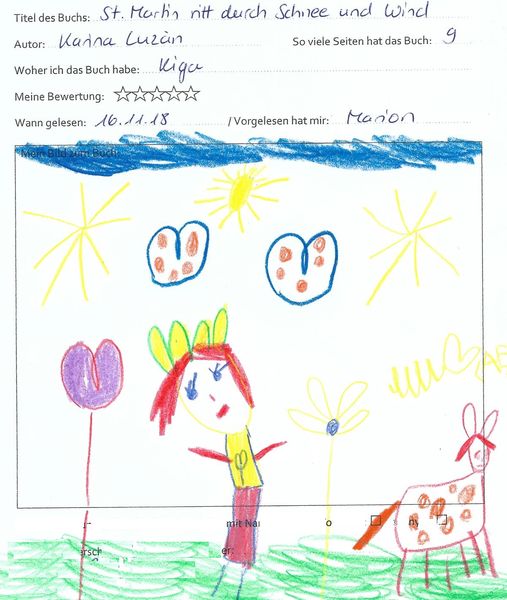 Titel des Buchs: St. Martin ritt durch Schnee und Wind
Autor: Karina Luzàn So viele Seiten hat das Buch: 9
Woher ich das Buch habe: Kiga
Meine Bewertung: ☆☆☆☆☆
Wann gelesen: 16.11.18 / Vorgelesen hat mir: Marion
Mein Bild zum Buch:
mit